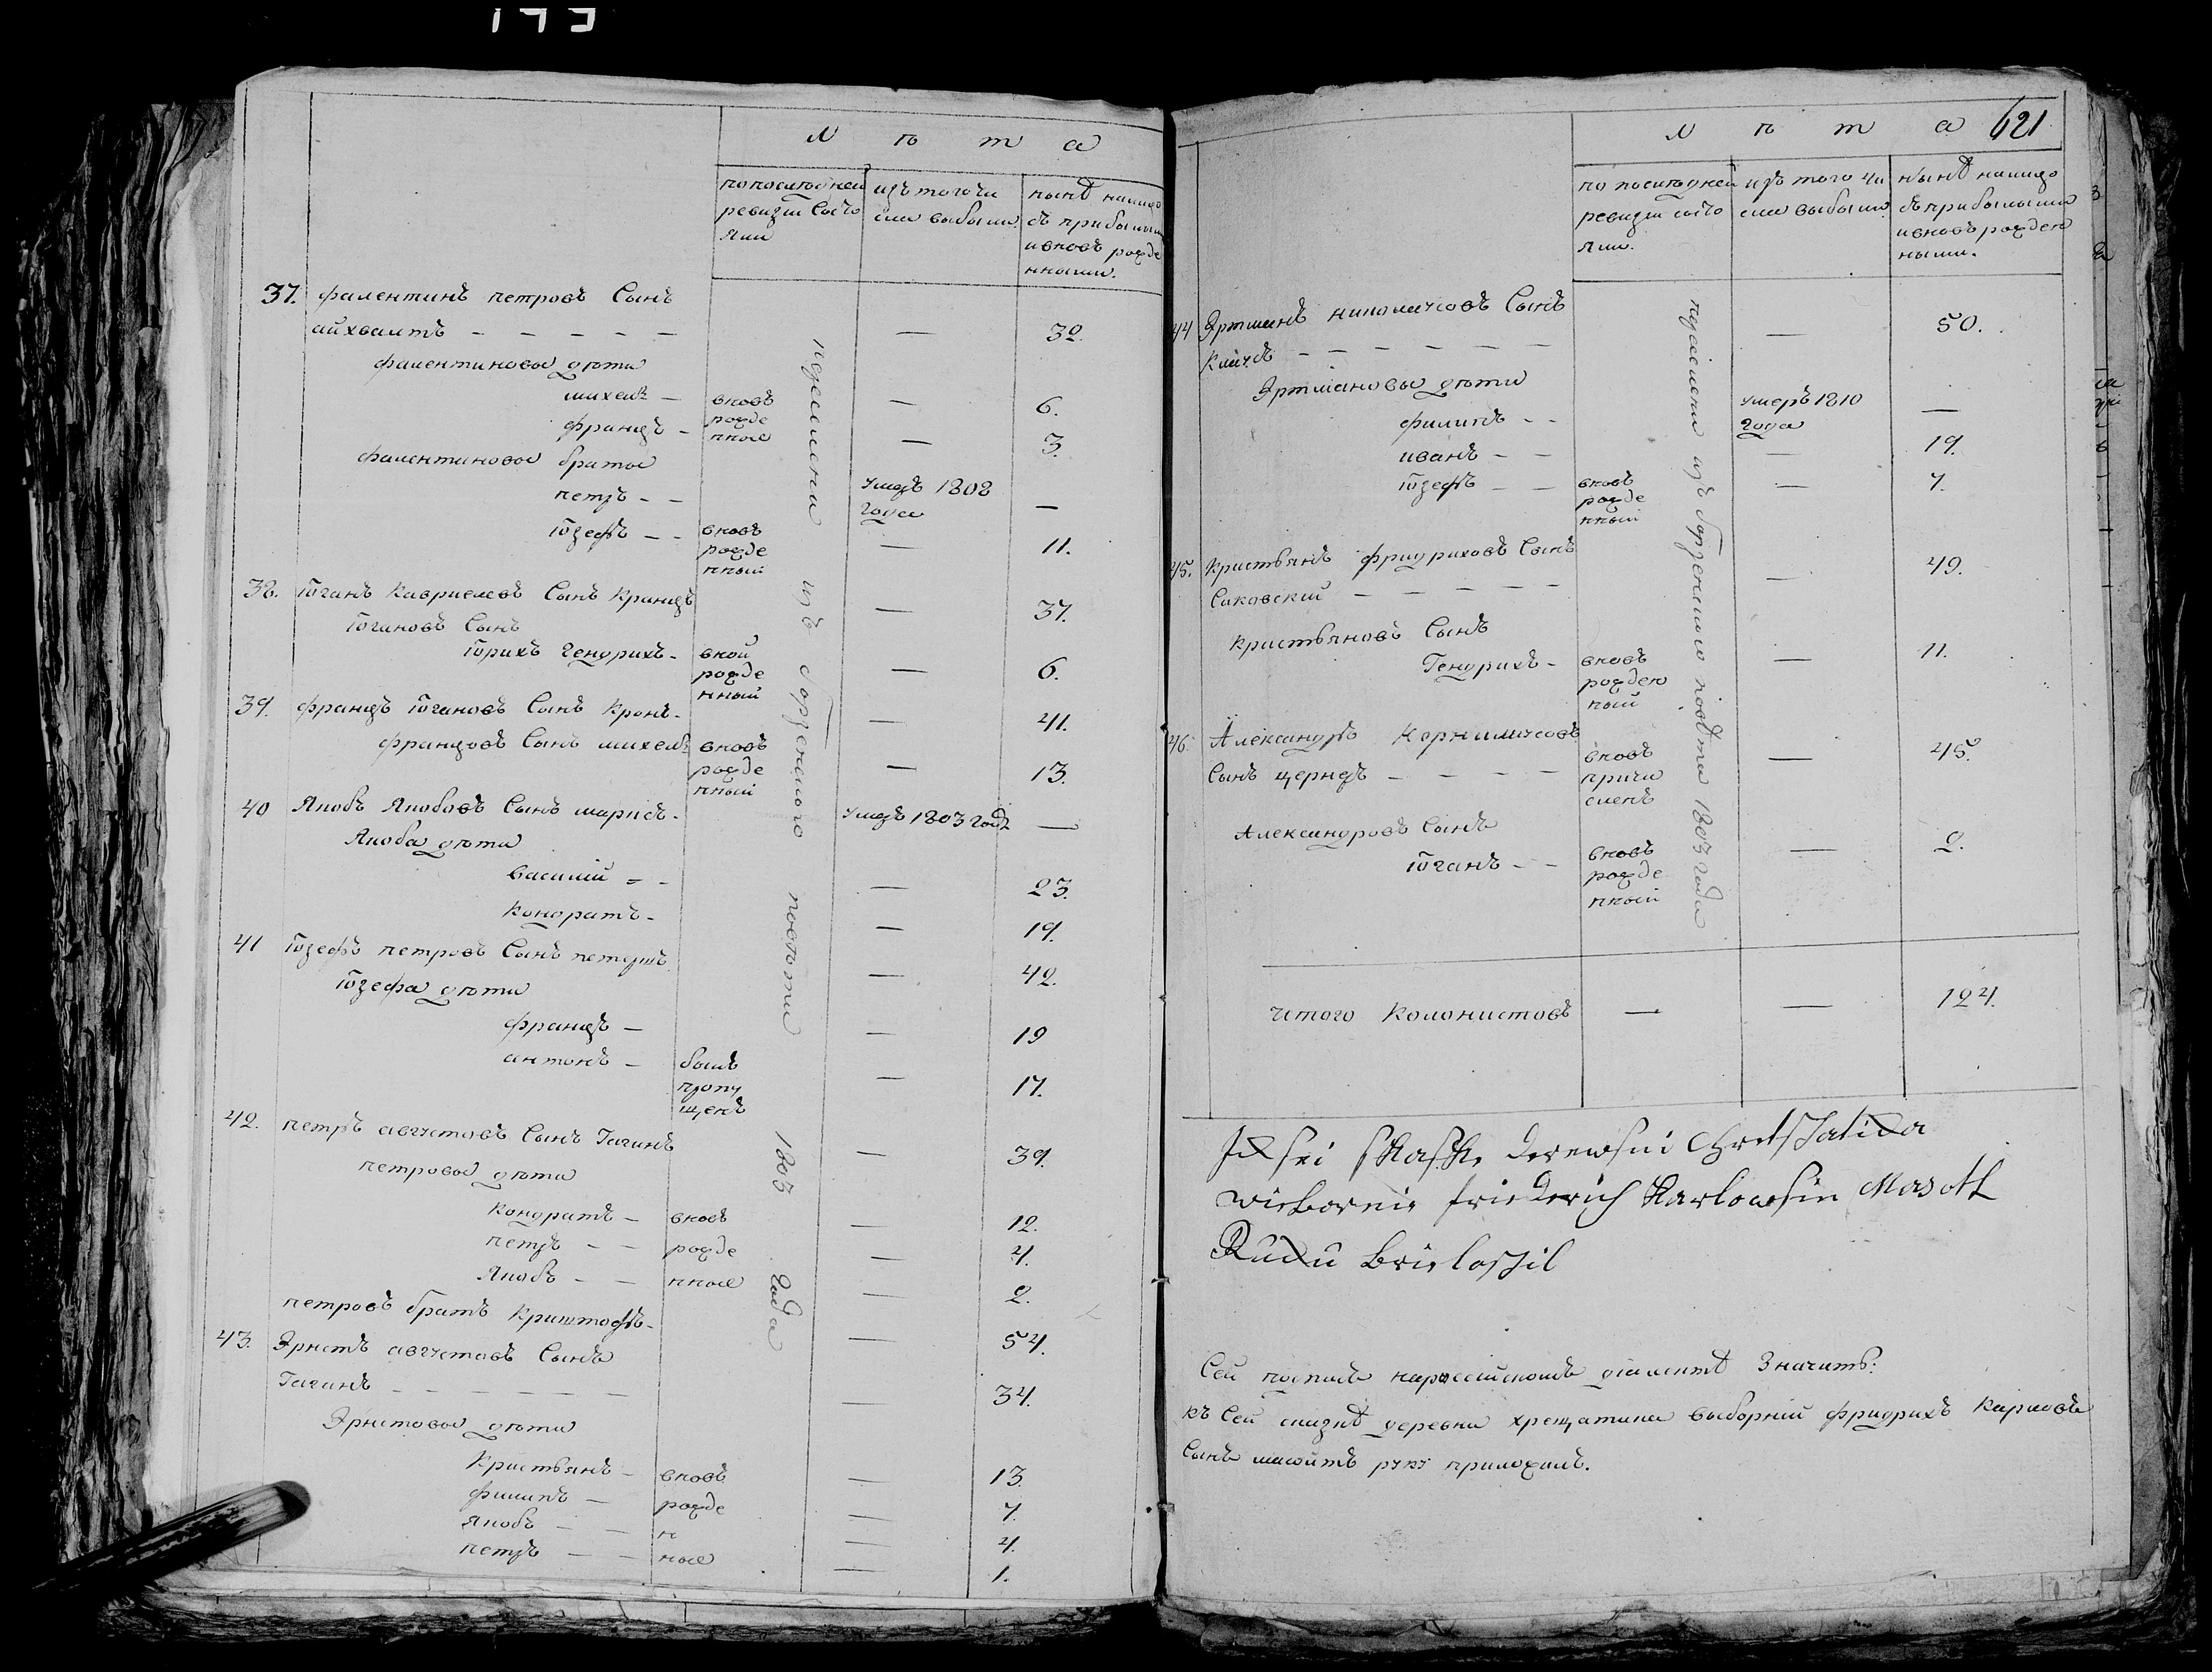 Л ѣ т а
по последней ревизiи состояли
изъ того числа выбыли
нынѣ налицо съ прибылыми и вновь рожденными.
37. фалентинъ петровъ Сынъ
айхвалтъ — — — — — — 32.
фалентиновы дѣти
михель — вновь рожденные — 6.
францъ — — 3.
фалентиновы братья
петръ — — умеръ 1808 года —
іозефъ — — вновь рожденный — 11.
38. іоганъ Кавриелевъ Сынъ Кранцъ — 37.
іогановъ Сынъ
іорихъ Гендрихъ — вной рожденный — 6.
39. францъ іогановъ Сынъ Кронъ — — 41.
францовъ Сынъ михель вновь рожденный — 13.
40 Якобъ Якобовъ Сынъ шарнсъ — умеръ 1803 года —
Якоба дѣти
василій — — — 23.
Кондратъ — — 19.
41 іозефъ петровъ Сынъ петершъ — 42.
іозефа дѣти
францъ — — 19
антонъ — былъ пропущенъ — 17.
42. петръ августовъ Сынъ Гагинъ — 39.
петровы дѣти
Кондратъ — вновь — 12.
петръ — — рожде — 4.
Якобъ — — нные — 2.
петровъ братъ Криштофъ — — 54.
43. Эрнстъ августовъ Сынъ
Гагинъ — — — — — — — 34.
Эрнстовы дѣти
Кристьянъ — вновь — 13.
филипъ — рожде — 7.
Якобъ — — н — 4.
петръ — — ные — 1.
переселены изъ борзенского повѣта 1803 года
621
Л ѣ т а
по последней ревизiи состояли.
изъ того числа выбыли
нынѣ налицо съ прибылыми и вновь рожденными.
44 Эртманъ николаусовъ Сынъ
— — — — — — — 50.
Эртмановы дѣти
филипъ — — умеръ 1810 года —
иванъ — — — 19.
іозефъ — — вновь рожденный — 7.
45. Кристьянъ фридриховъ Сынъ
Саковский — — — — — 49.
Кристьяновъ Сынъ
Гендрихъ — вновь рожденный — 11.
46. Александръ Корниличсовъ
Сынъ цернцъ — — — — вновь причисленъ — 45.
Александровъ Сынъ
іоганъ — — вновь рожденный — 2.
переселены изъ борзенского повѣта 1803 года
Итого Колонистовъ — — 124.
K sei skaske derewni Chretschatika
wiebornie friederich Karlowsin Masoth
Ruku brieloschil
Сей подписъ нароссийскомъ діалектѣ Значитъ:
къ Сей сказкѣ деревни хрещатика выборній фридрихъ Карловъ
Сынъ масотъ руку приложилъ.